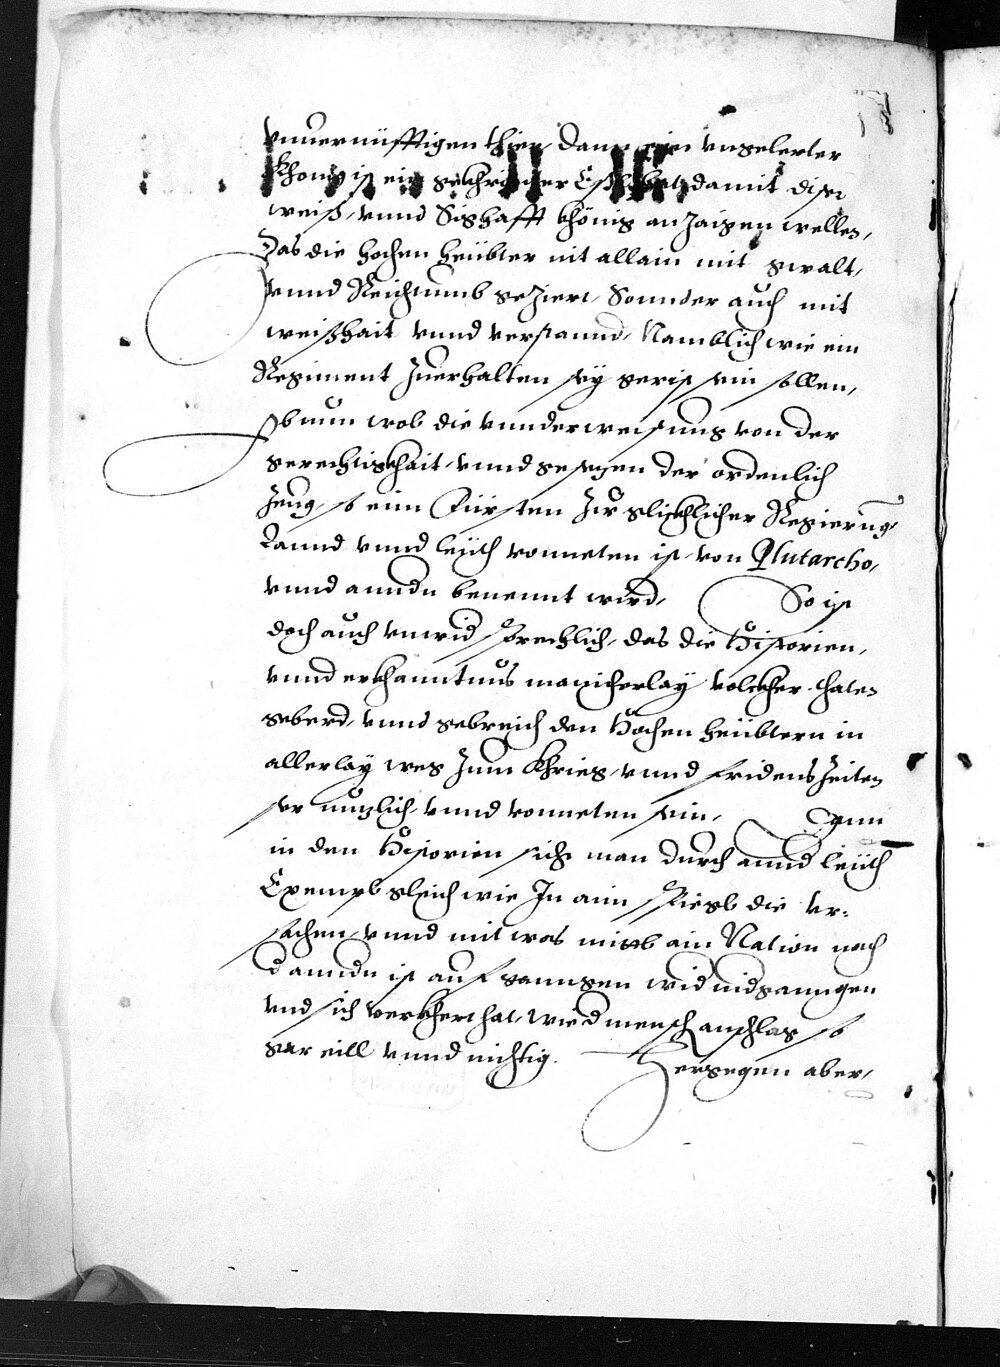 vnuernüfftigen thier, dann ein vngelerter
khonig ist ein gekhrönter Esl, hat damit diser
weiß, vnnd Sighafft khönig anzaigen wellen,
Das die hochen heübter nit allain mit gwalt,
vnnd Reichtumb geziert, Sonnder auch mit
weißhait vnnd verstannd, Namblich wie ein
Regiment zuerhalten sey gerist sein sollen,
Ob nun wol die vnnderweisung von der
gerechtigkhait, vnnd gesetzen der ordenlich
zeug, so eim Fürsten zur glickhlicher Regierung
Lannd vnnd leüth vonneten ist, von Plutarcho,
vnnd anndn benennt wird, So ist
doch auch vnwid sprechlich, das die Historien,
vnnd erkhanntnus manicherlay volckher thaten
geberd, vnnd gebreich den Hochen heübtern in
allerlay weg zum Khrieg, vnnd fridens zeiten
ser nutzlich, vnnd vonneten sein, Dann
in den Historien sicht man durch annd leüth
Exempl gleich wie In aim Spiegl die vr:
sachen, vnnd mit was mittl ain Nation nach
d anndn ist aufganngen wid nidganngen
vnd sich verkhert hat, wie d mensch anschlag so
gar eill vnnd nichtig. Hergegen aber,